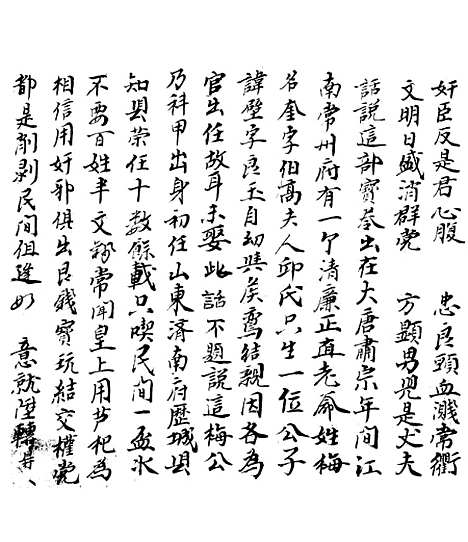 奸臣反是君心腹　忠良頭血濺常衢
文明日盛消群党　方顯男兒是丈夫
話說這部寳卷出在大唐肅宗年間江
南常州府有一个清廉正直老爺姓梅
名奎字伯高夫人邱氏只生一位公子
諱璧字良玉自幼與侯鸞結親因各為
官出任故耳未娶此話不題說這梅公
乃科甲出身初任山東済南府歷城县
知县榮任十数餘載只喫民間一盃水
不要百姓半文錢常聞皇上用芦杞為
相信用奸邪俱出良錢寳玩結交權党
都是削剥民間但進 意就陞轉